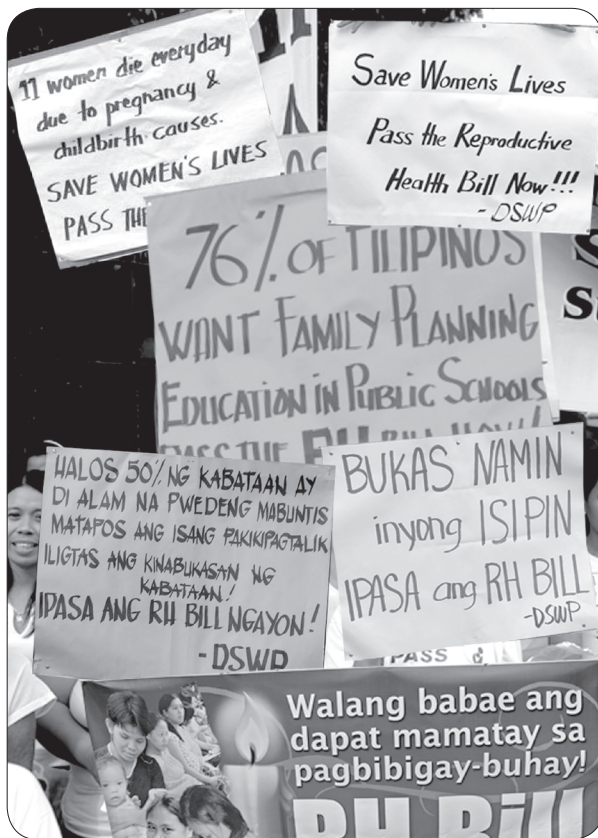 11 women die everyday
due to pregnancy &
childbirth causes.
SAVE WOMEN'S LIVES
PASS THE
Save Women's Lives
Pass the Reproductive
Health Bill Now!!!
- DSWP
76% OF FILIPINOS
WANT FAMILY PLANNING
EDUCATION IN PUBLIC SCHOOLS
PASS THE RH BILL NOW!
HALOS 50% NG KABATAAN AY
DI ALAM NA PWEDENG MABUNTIS
MATAPOS ANG ISANG PAKIKIPAGTALIK
ILIGTAS ANG KINABUKASAN NG
KABATAAN!
IPASA ANG RH BILL NGAYON!
- DSWP
BUKAS NAMIN
inyong ISIPIN
IPASA ang RH BILL
-DSWP
PASS
Walang babae ang
dapat mamatay sa
pagbibigay-buhay!
RH Bill